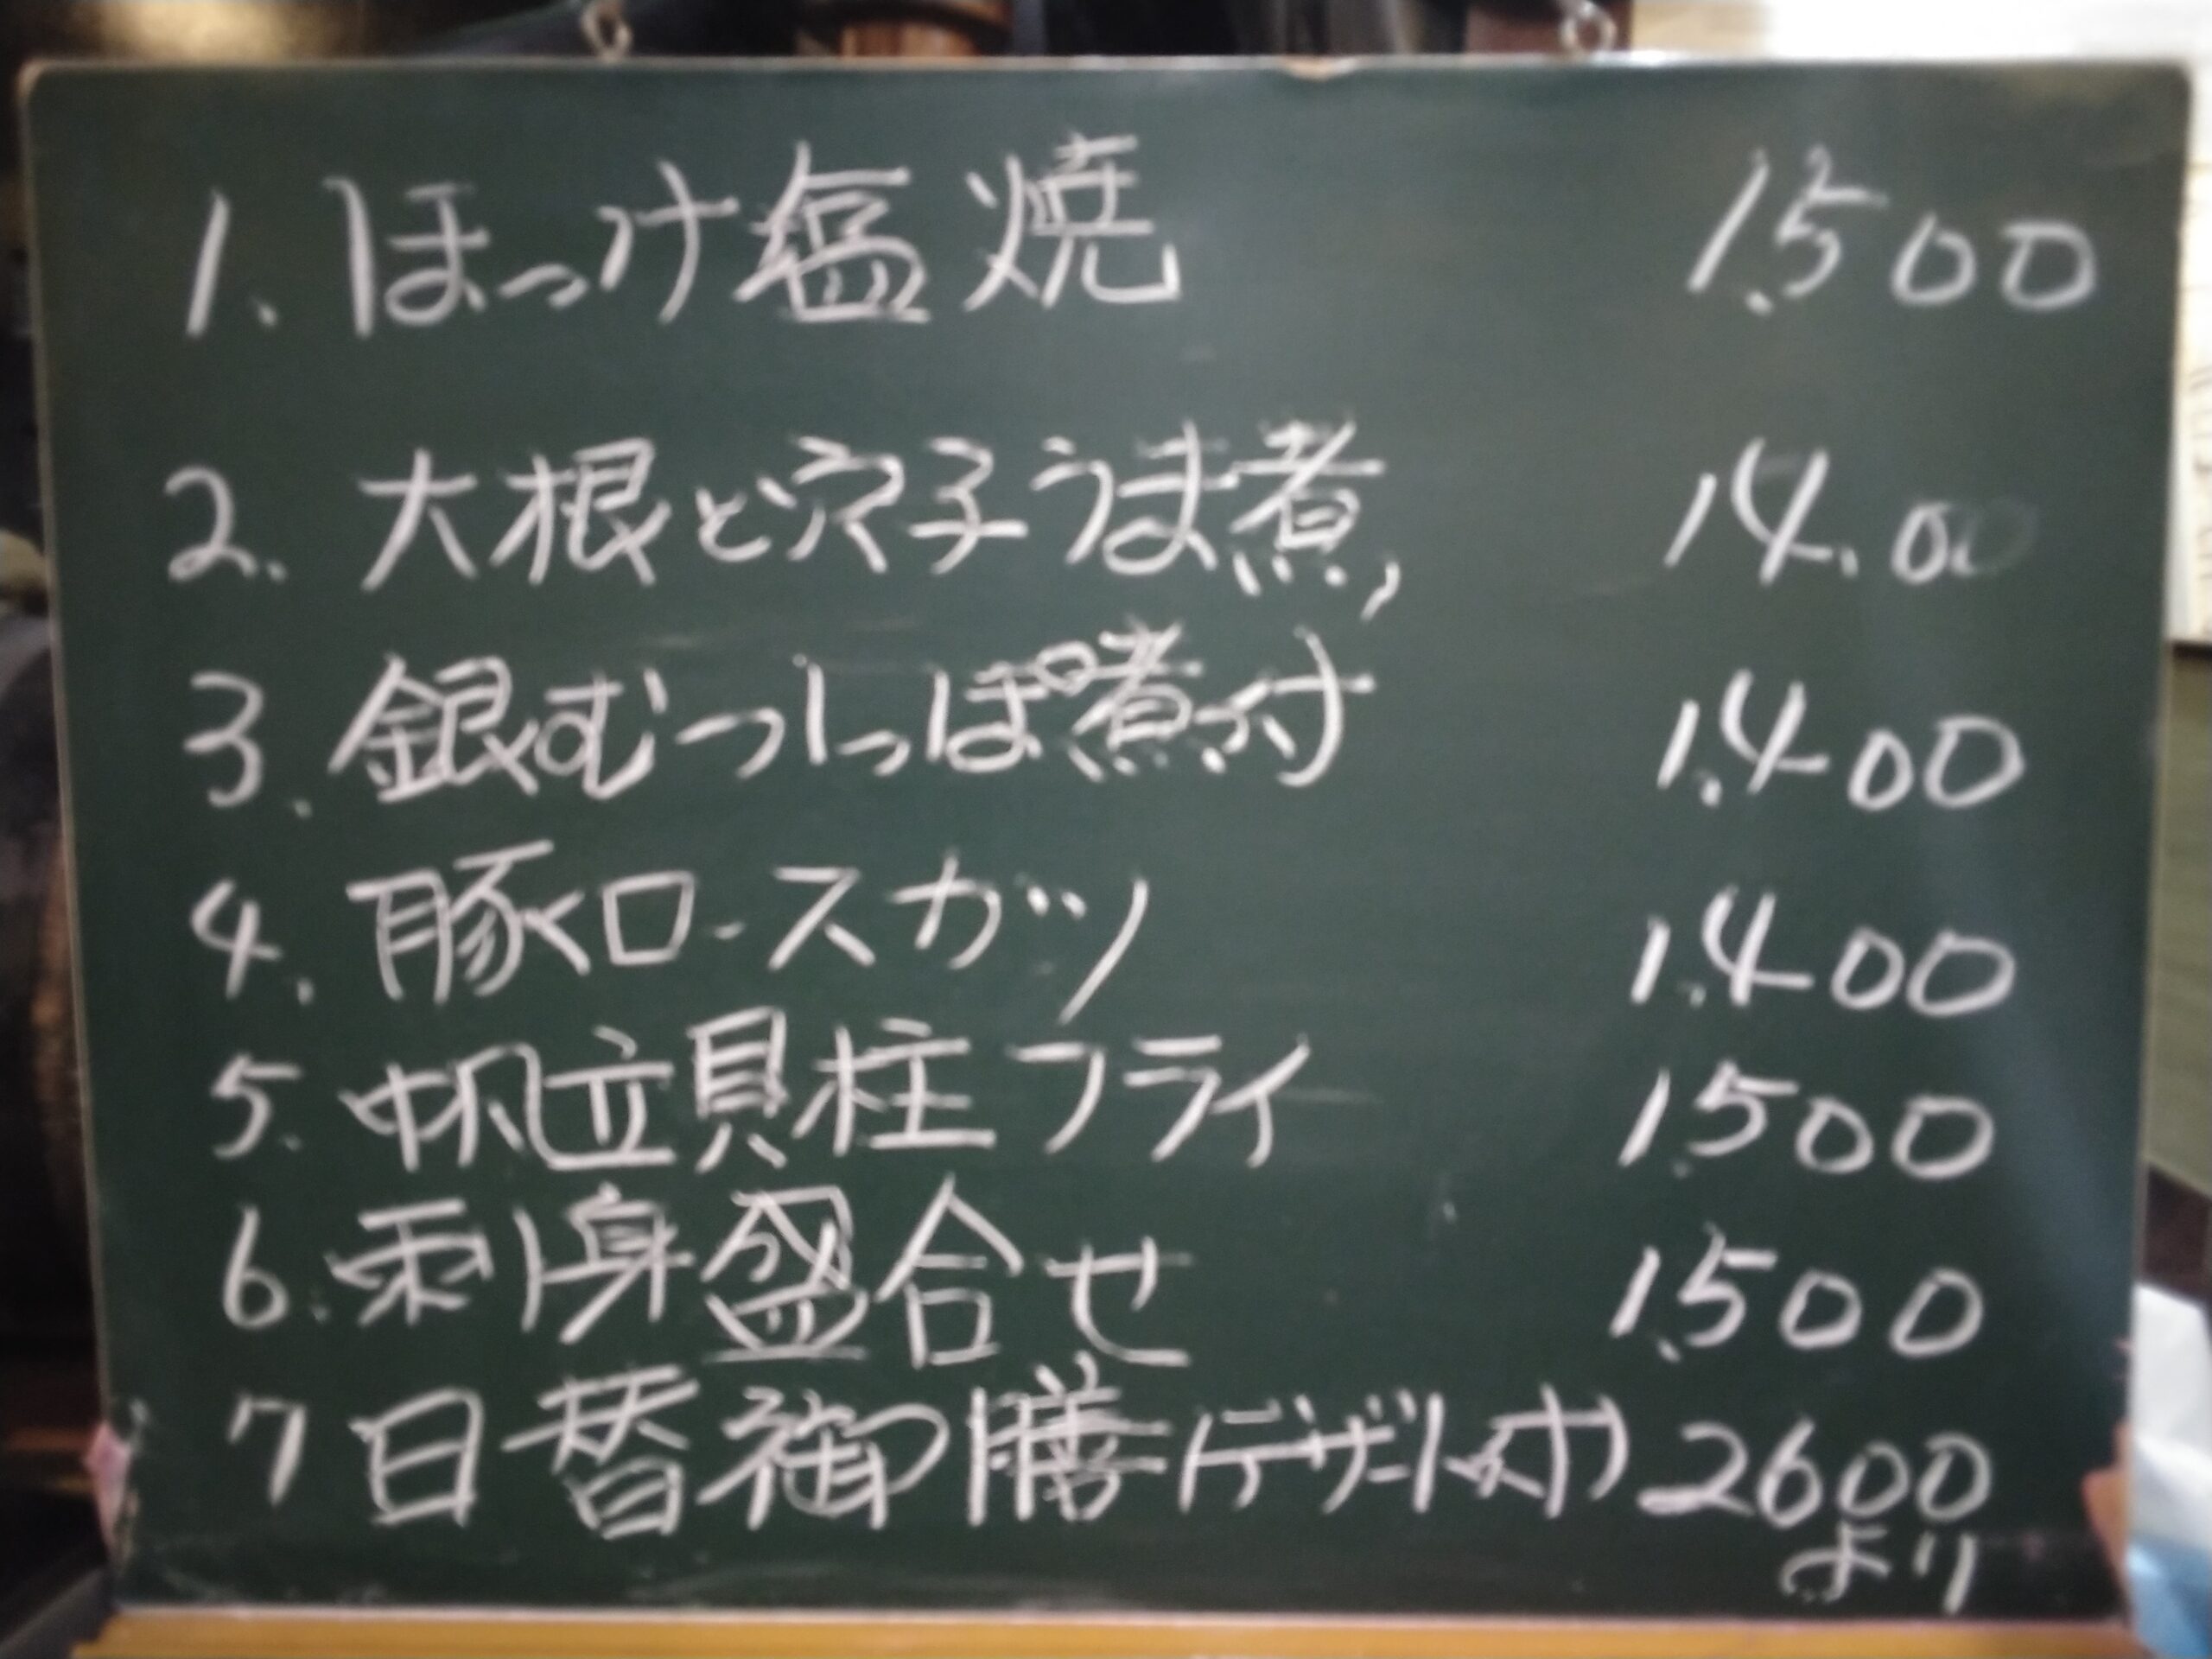 1. ほっけ塩焼 1.500
2. 大根と穴子うま煮, 14.00
3. 銀むつしっぽ煮付 1.400
4. 豚ロースカツ 1.400
5. 帆立貝柱フライ 1.500
6. 刺身盛合せ 1.500
7 日替御膳(デザート付) 2600
より